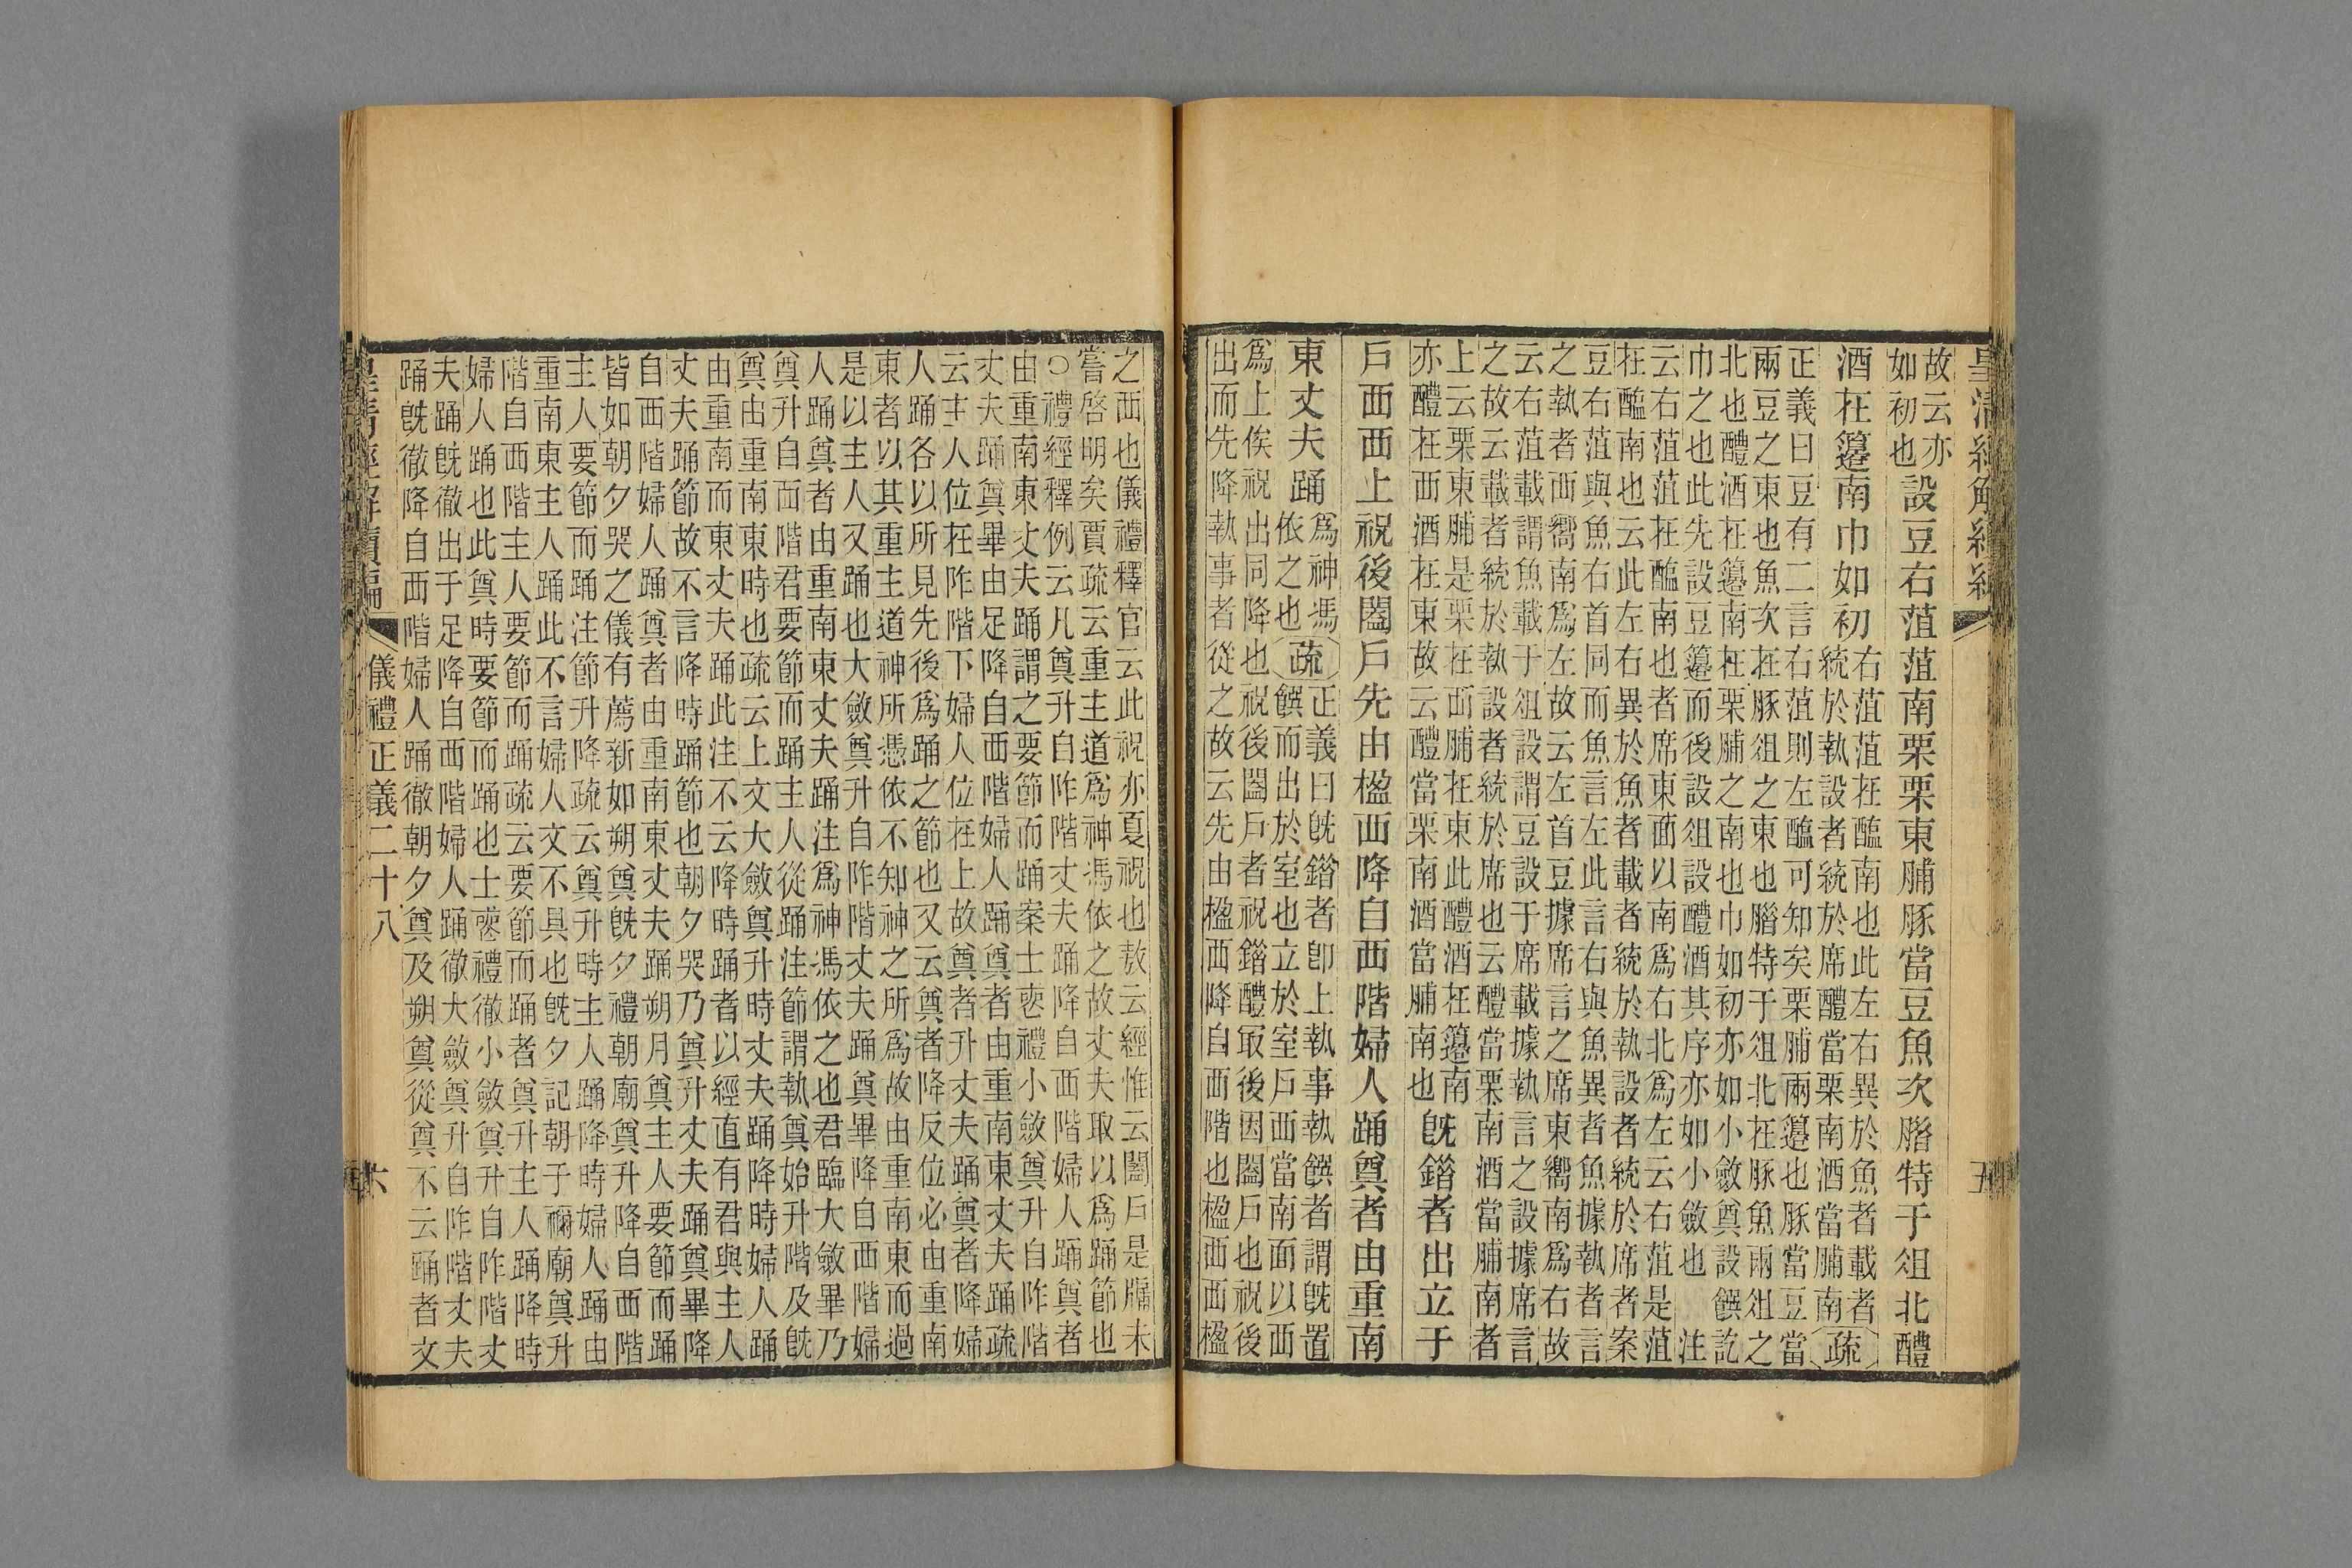 皇清經解續編
五
故云亦
如初也
設豆右菹菹南栗栗東脯豚當豆魚次腊特于俎北醴
酒在籩南巾如初
右菹菹在醢南也此左右異於魚者載者
統於執設者統於席醴當栗南酒當脯南
疏
正義曰豆有二言右菹則左醢可知矣栗脯兩籩也豚當豆當
兩豆之東也魚次在豚俎之東也腊特于俎北在豚魚兩俎之
北也醴酒在籩南在栗脯之南也巾如初亦如小斂奠設饌訖
巾之也此先設豆籩而後設俎設醴酒其序亦如小斂也　注
云右菹菹在醢南也者席東面以南爲右北爲左云右菹是菹
在醢南也云此左右異於魚者載者統於執設者統於席者案
豆右菹與魚右首同而魚言左此言右與魚異者魚據執者言
之執者西嚮南爲左故云左首豆據席言之席東嚮南爲右故
云右菹載謂魚載于俎設謂豆設于席載據執言之設據席言
之故云載者統於執設者統於席也云醴當栗南酒當脯南者
上云栗東脯是栗在西脯在東此醴酒在籩南
亦醴在西酒在東故云醴當栗南酒當脯南也
既錯者出立于
戶西西上祝後闔戶先由楹西降自西階婦人踊奠者由重南
東丈夫踊
爲神馮
依之也
疏
正義曰既錯者卽上執事執饌者謂既置
饌而出於室也立於室戶西當南面以西
爲上俟祝出同降也祝後闔戶者祝錯醴㝡後因闔戶也祝後
出而先降執事者從之故云先由楹西降自西階也楹西西楹
之西也儀禮釋官云此祝亦夏祝也敖云經惟云闔戶是牖未
嘗啓明矣賈疏云重主道爲神馮依之故丈夫取以爲踊節也
○禮經釋例云凡奠升自阼階丈夫踊降自西階婦人踊奠者
由重南東丈夫踊謂之要節而踊案士喪禮小斂奠升自阼階
丈夫踊奠畢由足降自西階婦人踊奠者由重南東丈夫踊疏
云主人位在阼階下婦人位在上故奠者升丈夫踊奠者降婦
人踊各以所見先後爲踊之節也又云奠者降反位必由重南
東者以其重主道神所憑依不知神之所爲故由重南東而過
是以主人又踊也大斂奠升自阼階丈夫踊奠畢降自西階婦
人踊奠者由重南東丈夫踊注爲神馮依之也君臨大斂畢乃
奠升自西階君要節而踊主人從踊注節謂執奠始升階及既
奠由重南東時也疏云上文大斂奠升時丈夫踊降時婦人踊
由重南而東丈夫踊此注不云降時踊者以經直有君與主人
丈夫踊節故不言降時踊節也朝夕哭乃奠升丈夫踊奠畢降
自西階婦人踊奠者由重南東丈夫踊朔月奠主人要節而踊
皆如朝夕哭之儀有薦新如朔奠既夕禮朝廟奠升降自西階
主人要節而踊注節升降疏云奠升時主人踊降時婦人踊由
重南東主人踊此不言婦人文不具也既夕記朝于禰廟奠升
階自西階主人要節而踊疏云要節而踊者奠升主人踊降時
婦人踊也此奠時要節而踊也士喪禮徹小斂奠升自阼階丈
夫踊既徹出于足降自西階婦人踊徹大斂奠升自阼階丈夫
踊既徹降自西階婦人踊徹朝夕奠及朔奠從奠不云踊者文
皇清經解續編
儀禮正義二十八
六